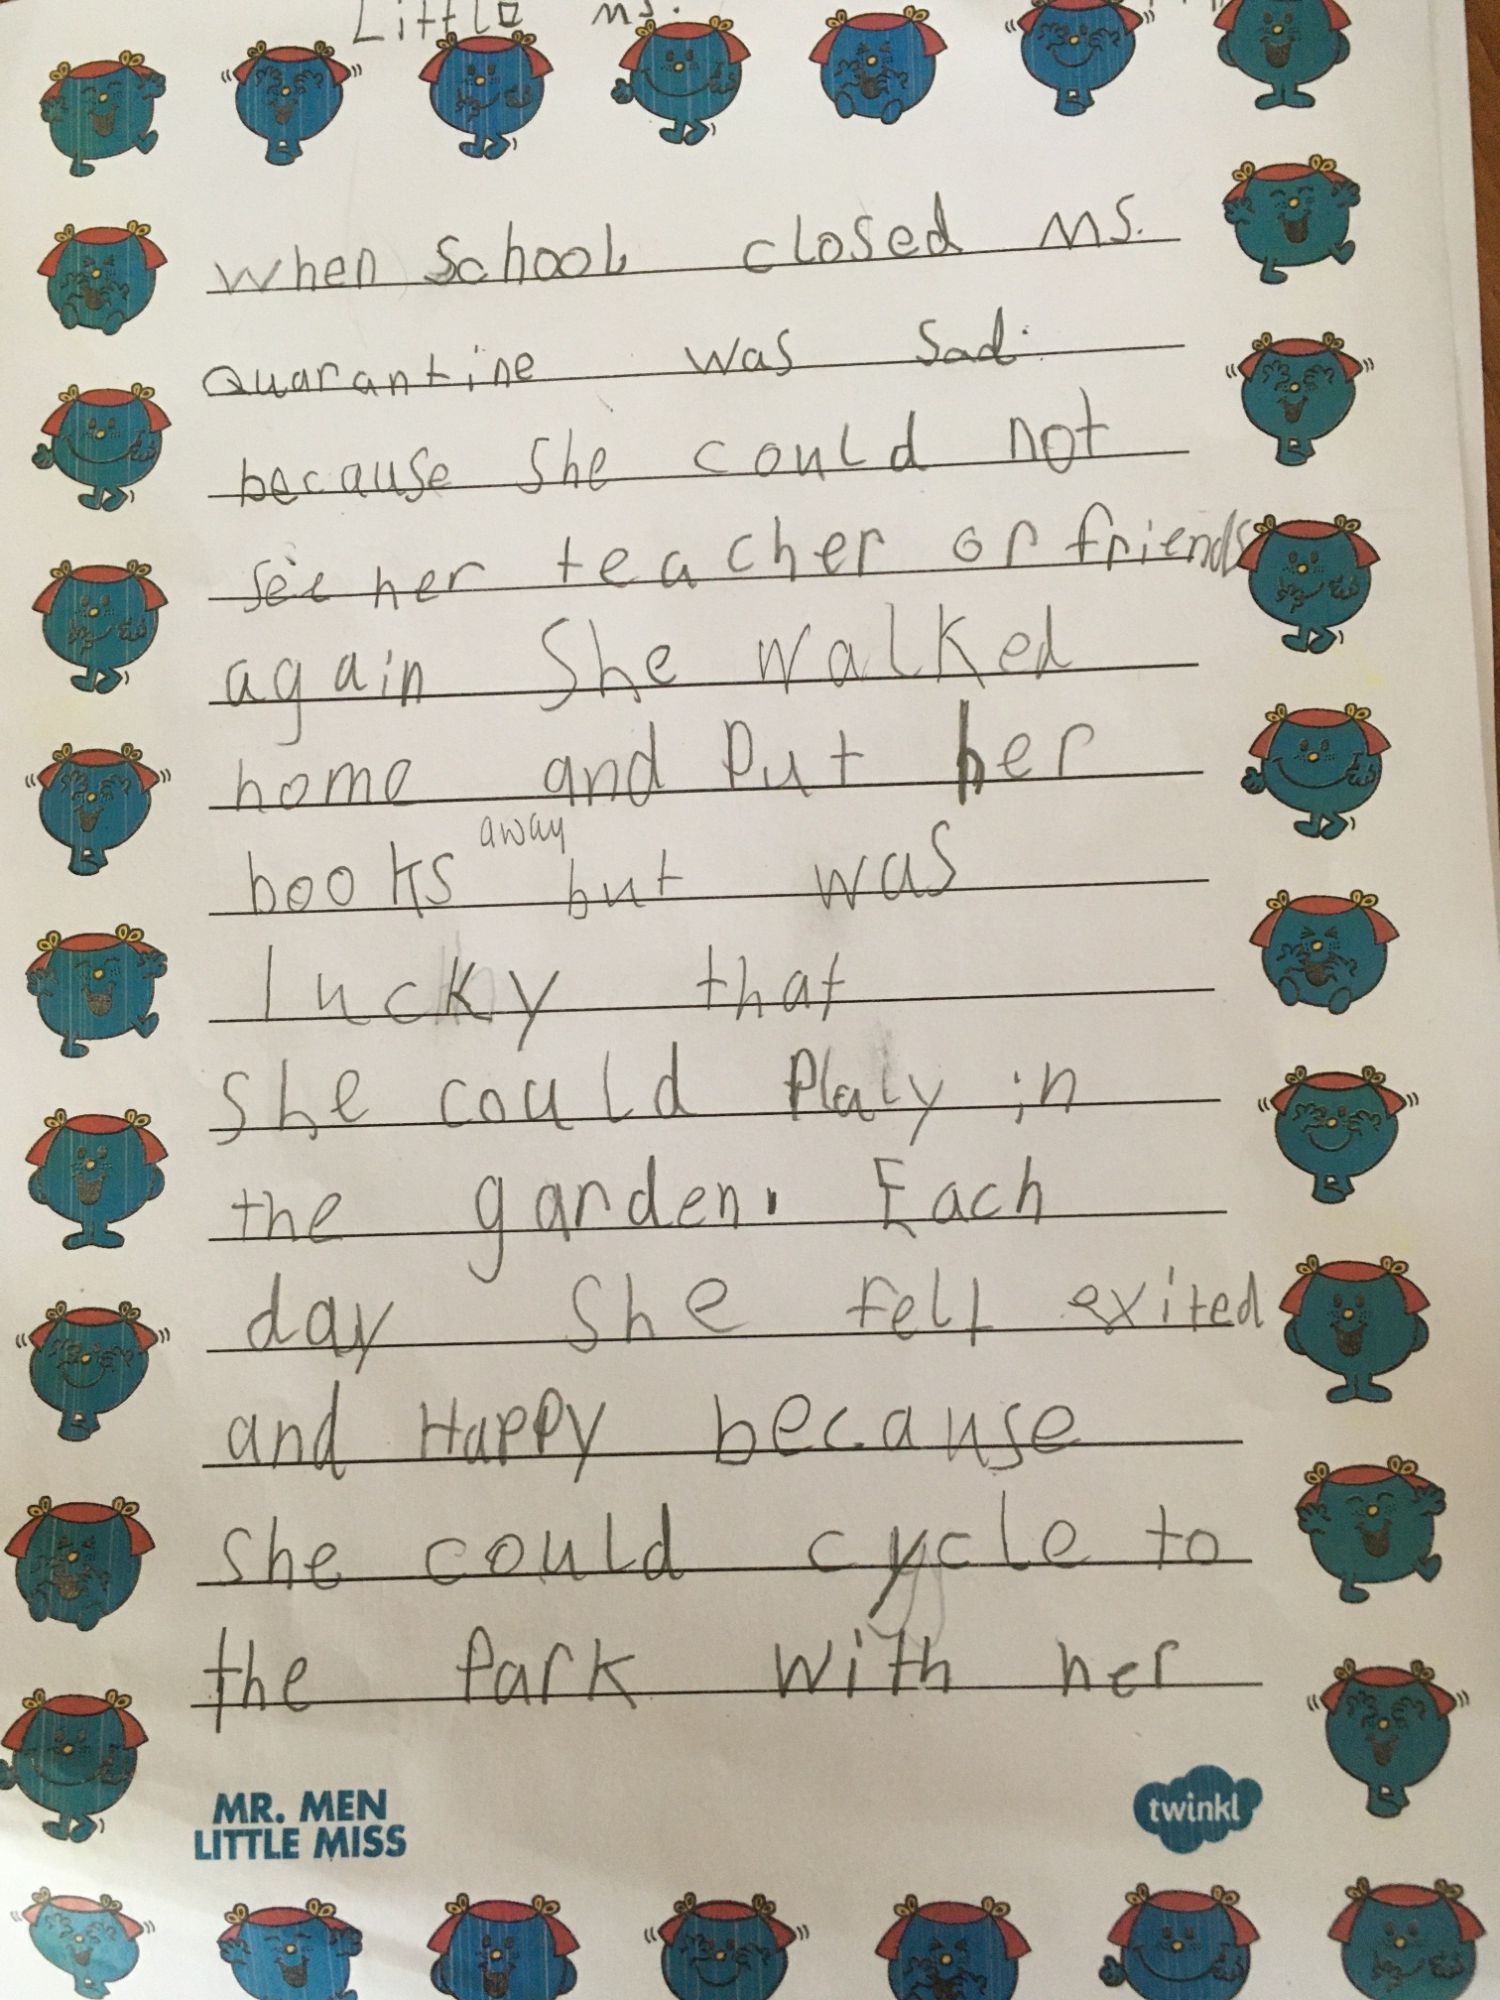 Little ms.
When school closed ms.
Quarantine was sad.
because she could not
see her teacher or friends
again She walked
home and Put her
books away but was
lucky that
she could Plaly in
the garden. Each
day She felt exited
and Happy because
she could cycle to
the Park with her
MR. MEN
LITTLE MISS
twinkl